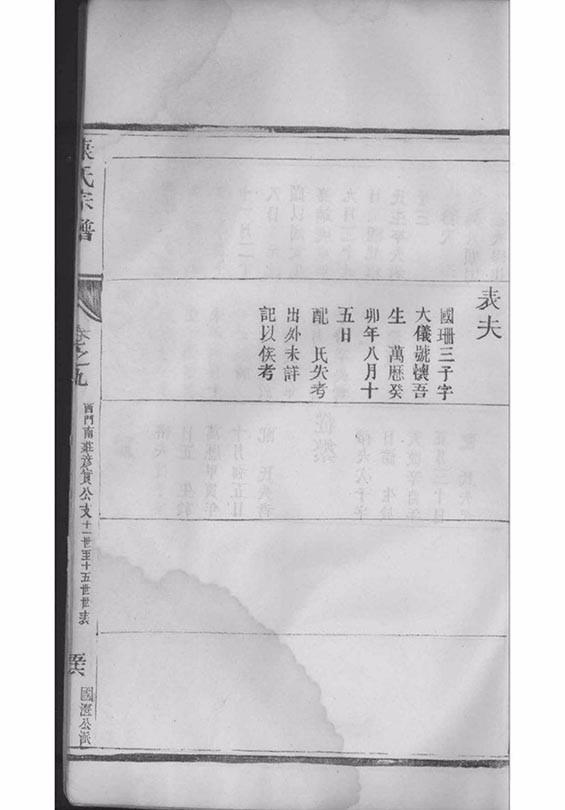 表夫
國珊三子字
大儀號懷吾
生 萬曆癸
卯年八月十
五日
配 氏失考
出外未詳
記以俟考
氏宗譜
卷之九
西門南莊
公支十一世至十五世世表
國澄公派